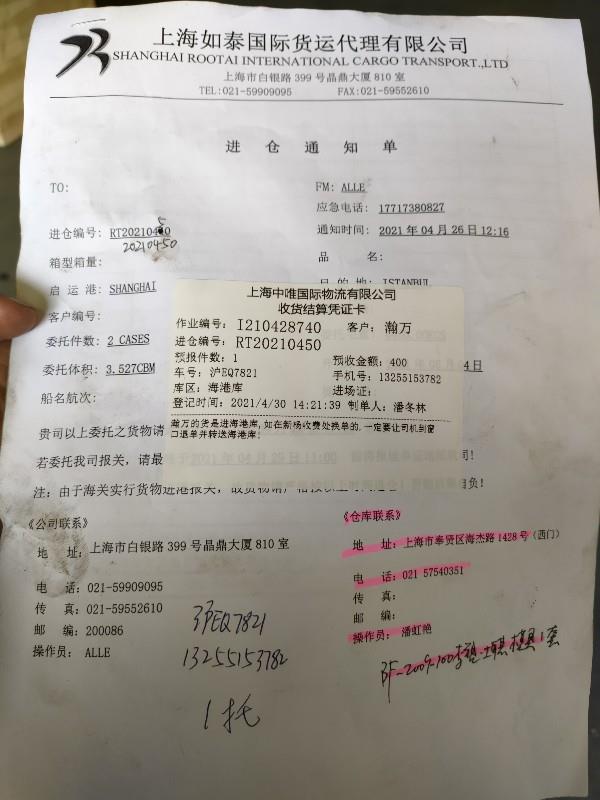 上海如泰国际货运代理有限公司
SHANGHAI ROOTAI INTERNATIONAL CARGO TRANSPORT.,LTD
上海市白银路 399 号晶鼎大厦 810 室
TEL:021-59909095 FAX:021-59552610
进 仓 通 知 单
TO: FM: ALLE
应急电话: 17717380827
进仓编号: RT20210450 通知时间: 2021 年 04 月 26 日 12:16
20210450
箱型箱量: 品 名:
启 运 港: SHANGHAI 目 的 地: ISTANBUL
客户编号:
委托件数: 2 CASES
委托体积: 3.527CBM 4 日
船名航次:
上海中唯国际物流有限公司
收货结算凭证卡
作业编号: I210428740 客户: 瀚万
进仓编号: RT20210450
预报件数: 1 预收金额: 400
车号: 沪EQ7821 手机号: 13255153782
库区: 海港库 进场证:
登记时间: 2021/4/30 14:21:39 制单人: 潘冬林
瀚万的货是进海港库,如在新杨收费处换单的.一定要让司机到窗
口退单并转送海港库!
贵司以上委托之货物请
若委托我司报关, 请最
注: 由于海关实行货物进港报关,
《公司联系》 《仓库联系》
地 址: 上海市白银路 399 号晶鼎大厦 810 室 地 址: 上海市奉贤区海杰路 1428 号 (西门)
电 话: 021-59909095 电 话: 021 57540351
传 真: 021-59552610 传 真:
邮 编: 200086 邮 编:
操作员: ALLE 操作员: 潘虹艳
沪EQ7821
13255153782
1托